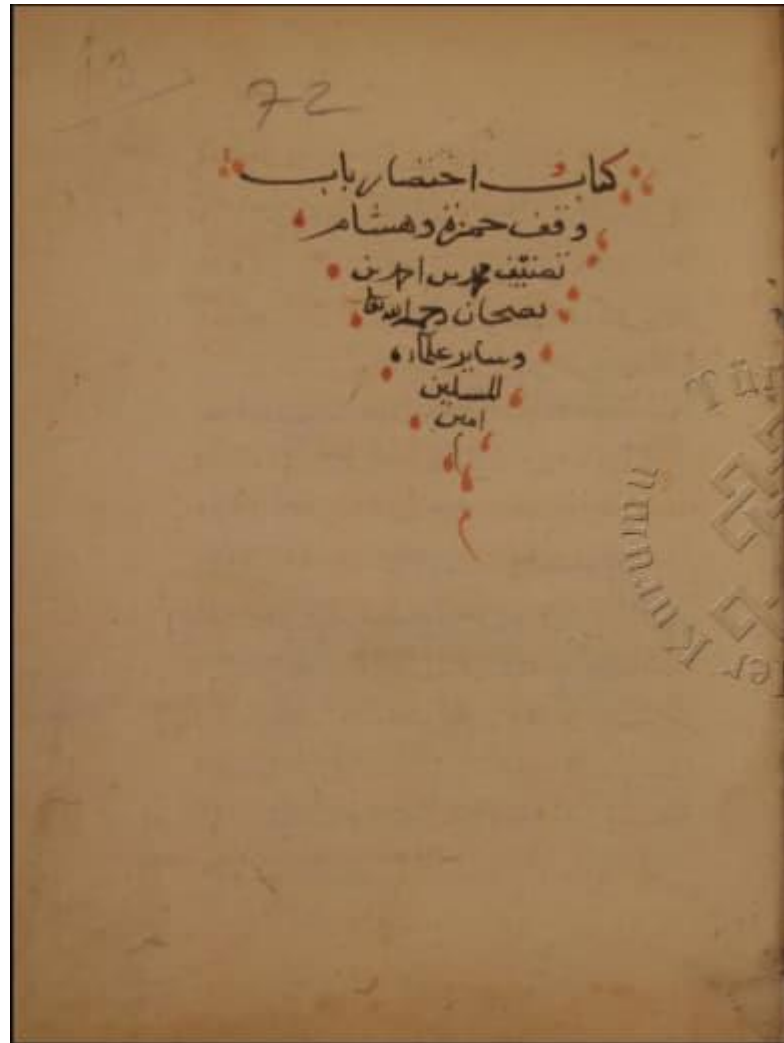 72
كتاب اختصار باب
وقف حمزة وهشام
تصنيف محمد بن احمد بن
بصخان رحمه الله تعا
وساير علماء
المسلمين
امين